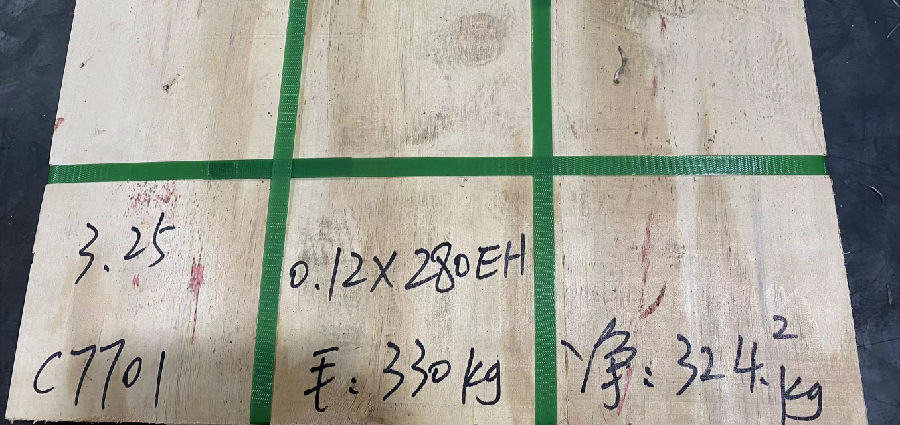 3.25
0.12X280EH
C7701
毛:330kg
净:324.2kg